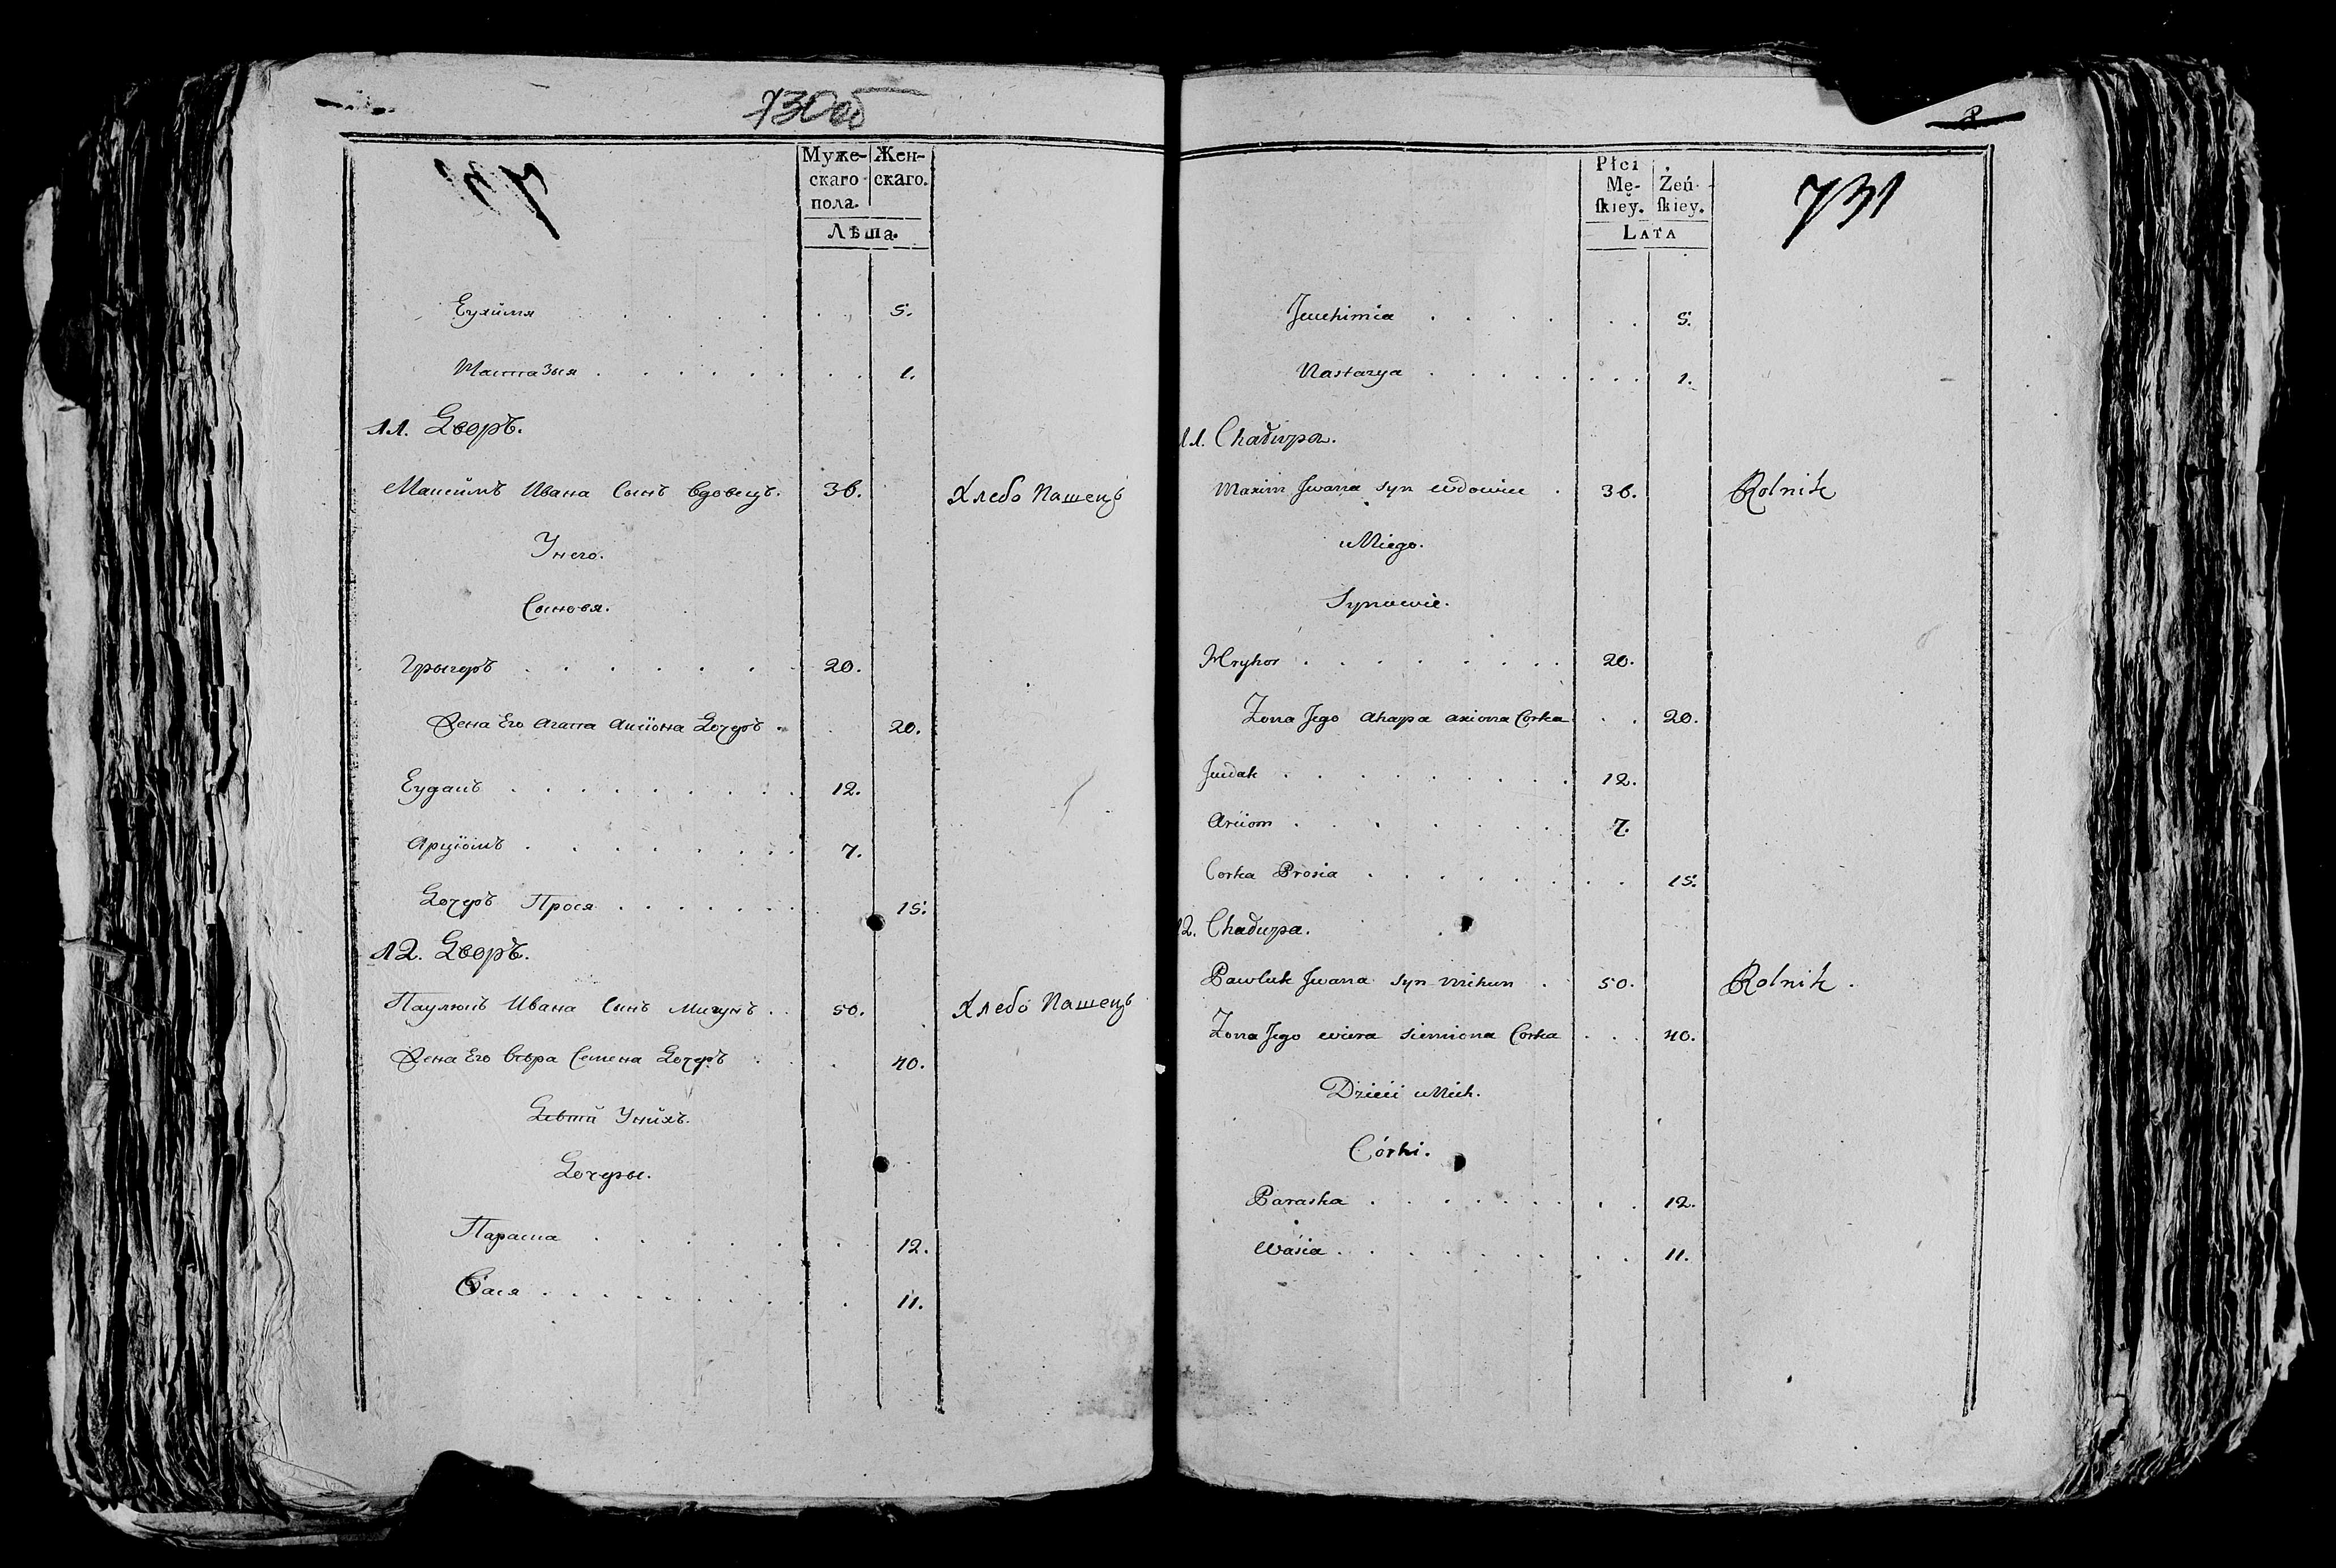 730об
Муже-
скаго
пола.
Жен-
скаго.
Лѣта.
Еухимя . . . . . . 5.
Настазыя . . . . . . . . 1.
11. Дворъ.
Максимъ Ивана Сынъ вдовецъ. 36. Хлебо Пашецъ
Унего.
Сыновя.
Грыгоръ . . . . . . 20.
Жена Его Агапа Аксіона Дочеръ . 20.
Еудакъ . . . . . . . . . 12.
Арціомъ . . . . . . . . 7.
Дочеръ Прося . . . . . . . 15.
12. Дворъ.
Паулюкъ Ивана Сынъ Мигунъ . . 50. Хлебо Пашецъ
Жена Его Вѣра Семена Дочеръ . . 40.
Дѣвти Унихъ.
Дочеры.
Параска . . . . . . 12.
Вася . . . . . . . . . . 11.
731
Płci
Mę-
ſkiey.
Żeń-
ſkiey.
LATA
Jeuchimia . . . . . . 5.
Nastazya . . . . . . . . 1.
11. Chałupa.
Maxim Jwana syn wdowiec . 36. Rolnik
u Niego.
Synowie.
Hryhor . . . . . . . . . 20.
Żona Jego Ahapa Axiona Corka . . 20.
Jeudak . . . . . . . . . 12.
Arciom . . . . . . . 7.
Corka Prosia . . . . . . . . . 15.
12. Chałupa.
Pawluk Jwana syn Mihun . 50. Rolnik .
Żona Jego Wiera Siemiona Corka . . . 40.
Dzieci u Nich.
Córki.
Paraska . . . . . . . . . 12.
Wasia . . . . . . . . . 11.